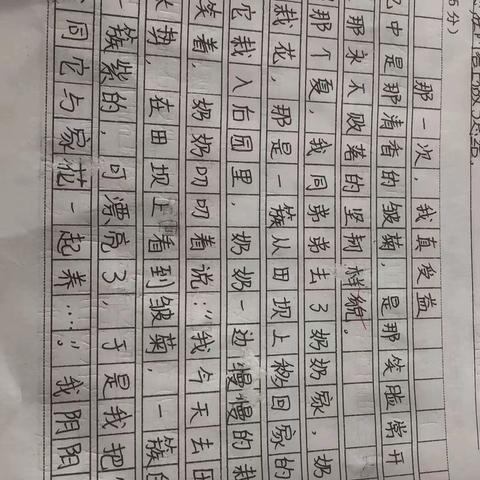 5分）
那一次，我真受益
中是那清香的皱菊，是那笑脸常开
那永不败落的坚韧样貌。
那个夏，我同弟弟去了奶奶家，奶
栽花，那是一簇从田坝上移回家的
它栽入后园里，奶奶一边慢慢的栽
笑着，奶奶叨叨着说：“我今天去田
势，在田坝上看到皱菊，一簇
一簇紫的，可漂亮了，于是我把
同它与家花一起养…”。我阴阴